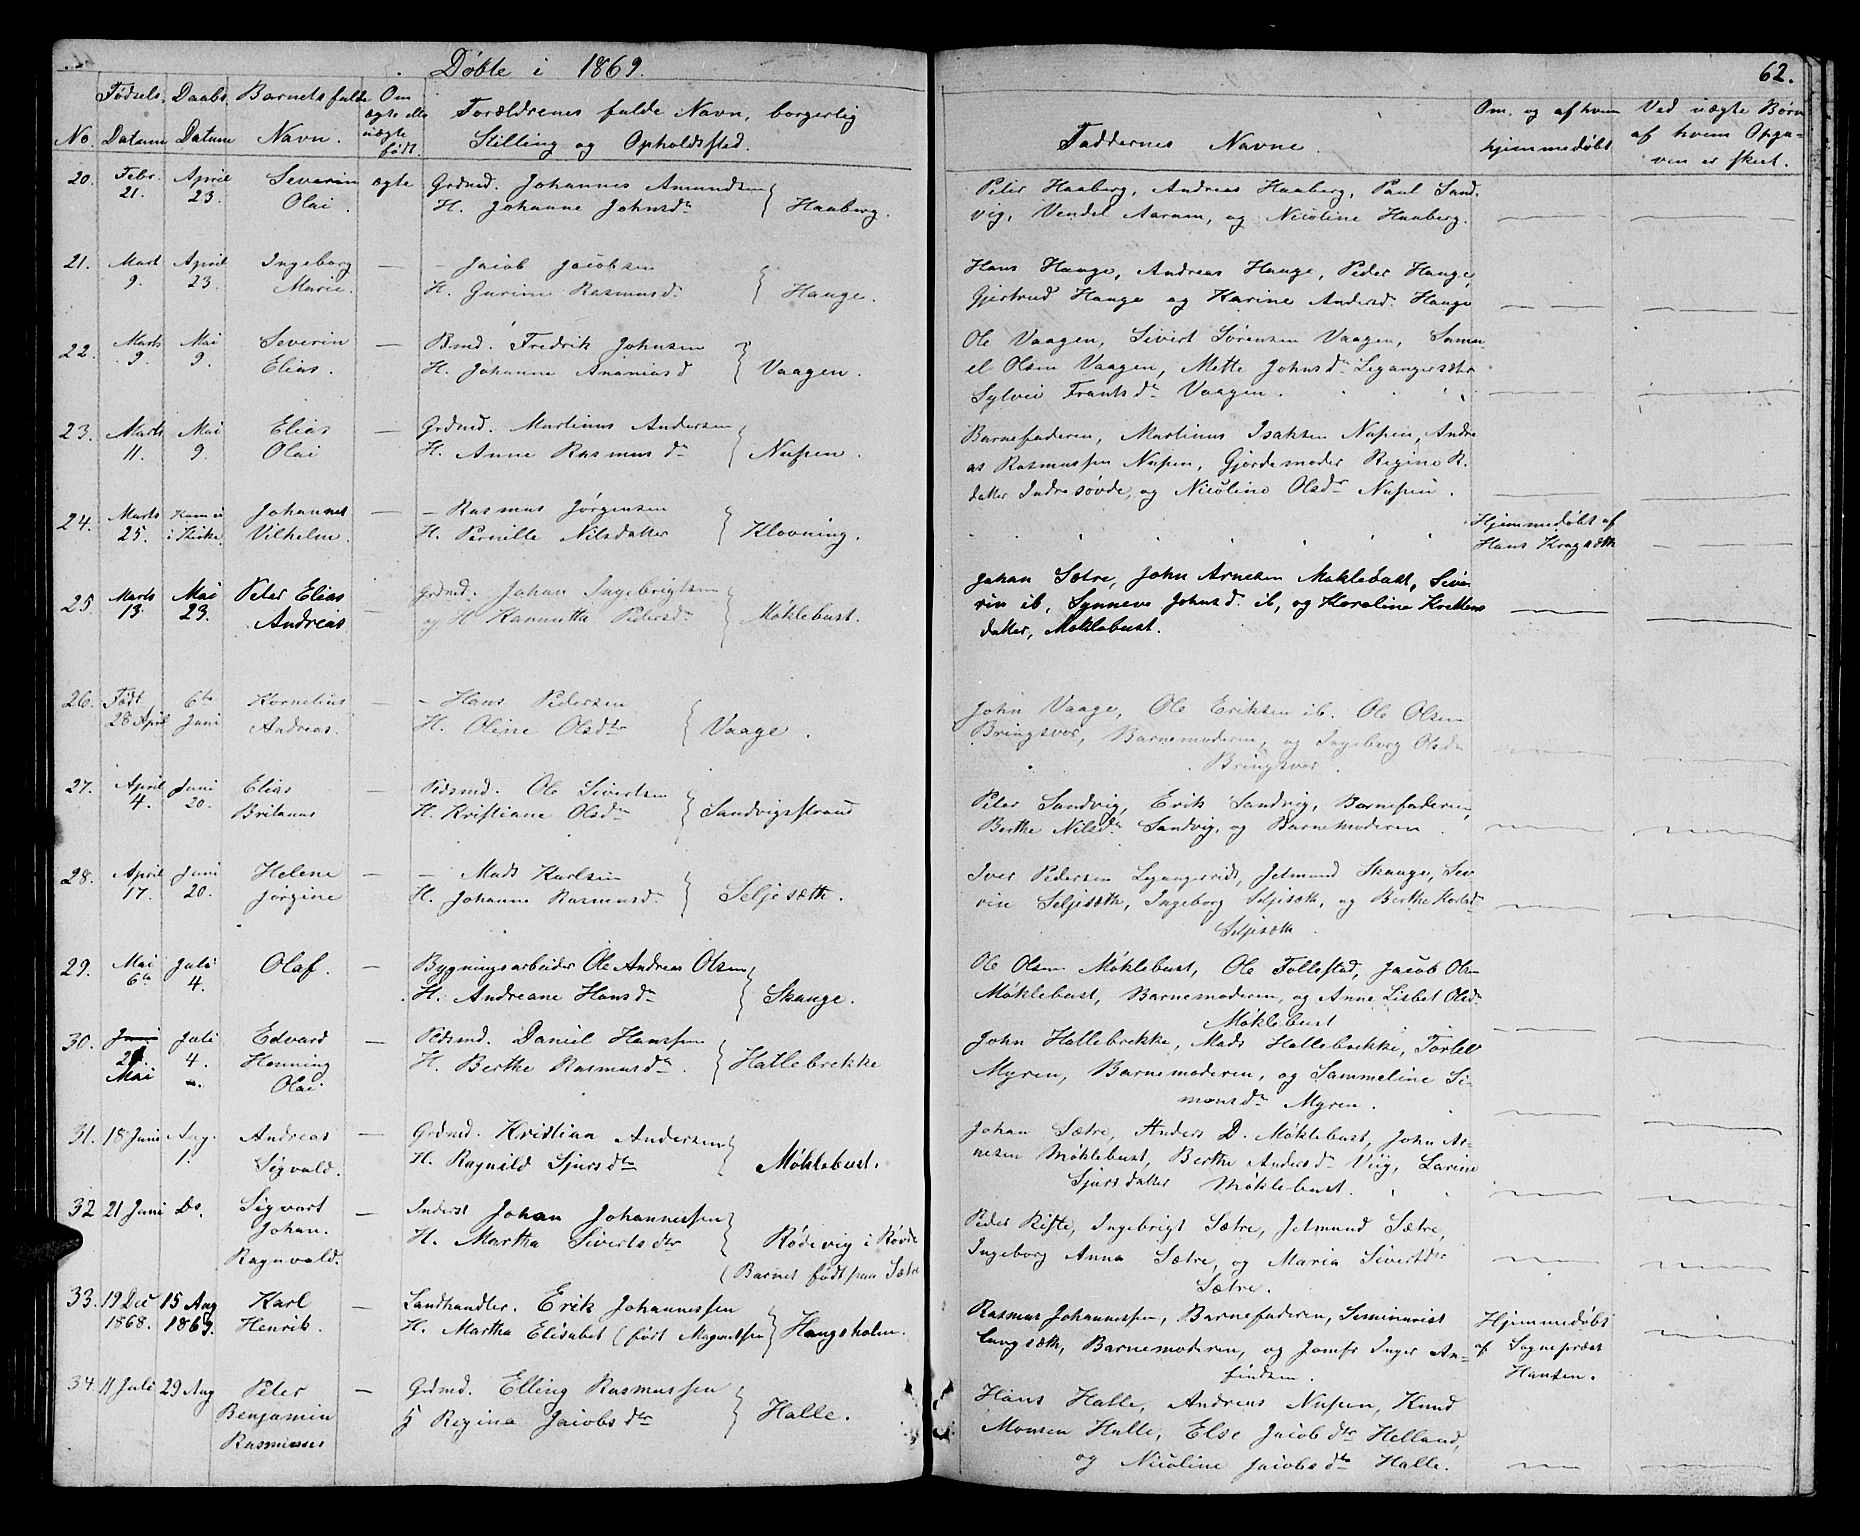 Døbte i 1869.
62.
No.
Fødsels Datum
Daabs Datum
Barnets fulde Navn.
Om ægte ell. uægte født.
Forældrenes fulde Navn, borgerlig Stilling og Opholdssted.
Faddernes Navne.
Om, og af hvem hjemmedøbt
Ved uægte Børn af hvem Opgaven er skeet.
20. Febr. 21. April 23. Severin Olai. ægte Grdmd. Johannes Amundsen
H. Johanne Johnsdr } Haaberg.
Peter Haaberg, Andreas Haaberg, Paul Sand-
vig, Vendel Aaram, og Nicoline Haaberg.
21. Mart 9. April 23. Ingeborg Marie. — - Jacob Jacobsen
H. Gurine Rasmusd. } Hauge.
Hans Hauge, Andreas Hauge, Peder Hauge,
Gjertrud Hauge og Karine Andersd. Hauge
22. Marts 9. Mai 9. Severin Elias. — Bmd. Fredrik Johnsen
H. Johanne Ananiasd } Vaagen.
Ole Vaagen, Sivert Sørensen Vaagen, Samu-
el Olsen Vaagen, Mette Johnsdr Legangersæter
Sylvei Frantsdr Vaagen.
23. Marts 11. Mai 9. Elias Olai — Grdmd. Martinus Andersen
H. Anne Rasmusdr } Nupen.
Barnefaderen, Martinus Isaksen Nupen, Andre
as Rasmussen Nupen, Gjordemoder Regine R.
datter Indresøvde, og Nicoline Olsdr Nupen.
24. Marts 25. Kom ei i Kirke. Johannes Vilhelm. — - Rasmus Jørgensen
H. Pernille Nilsdatter } Klovning.
Hjemmedøbt af
Hans Kragsæth
25. Marts 13. Mai 23. Peter Elias Andreas — Grdmd. Johan Ingebrigtsen
og H Pedersdr } Møklebust.
Johan Sætre, John Arnesen Møklebust, Seve-
rin ib, Synneve Johnsd. ib, og Karoline
datter, Møklebust.
26. Født 28 April 6te Juni Kornelius Andreas. - Hans Pedersen
H. Oline Olsdtr } Vaage.
John Vaage, Ole Eriksen ib. Ole Olsen
Bringsvor, Barnemoderen, og Ingeborg Olsdr
Bringsvor.
27. April 4. Juni 20. Elias Britanus — Pdsmd. Ole Sivertsen
H. Kristiane Olsdr } Sandvigsstrand
Peter Sandvig, Erik Sandvig, Barnefaderen,
Berthe Nilsdr Sandvig, og Barnemoderen.
28. April 17. Juni 20. Helene Jørgine — - Mads Karlsen
H. Johanne Rasmusdr } Seljesæth.
Iver Pedersen Legangereide, Jetmund Skauge, Sev-
rin Seljesæth, Ingeborg Seljesæth, og Berthe Karlsdr
Seljesæth.
29. Mai 6te Juli 4. Olaf. — Bygningsarbeider Ole Andreas Olsen
H. Andreane Hansdr } Skauge.
Ole Olsen Møklebust, Ole Follestad, Jacob Olsen
Møklebust, Barnemoderen, og Anne Lisbet Olsdr
Møklebust
30. Mai Juli 4. Edvard Henning Olai Pdsmd. Daniel Hanssen
H. Berthe Rasmusdr. } Hallebrekke
John Hallebrekke, Mads Hallebrekke, Torlev
Myren, Barnemoderen, og Sammeline Si-
monsdr Myren.
31. 18 Juni Aug. 1. Andreas Sigvald. — Grdmd. Kristian Andersen
H. Ragnild Sjursdtr } Møklebust.
Johan Sætre, Anders D. Møklebust, John Ar-
nesen Møklebust, Berthe Andersdr Viig, Larine
Sjursdatter Møklebust.
32 21 Juni Do. Sigvart Johan Ragnvald. — Inderst Johan Johannessen
H. Martha Sivertsdtr } Rødevig i Røvde
(Barnet født paa Sætre
Peder Riste, Ingebrigt Sætre, Jetmund Sætre,
Ingeborg Anna Sætre, og Maria Sivertsdtr
Sætre.
33. 19 Dec 1868. 15 Aug 1869. Karl Henrik. — Landhandler. Erik Johannessen
H. Martha Elisabet (født Magnussen } Haugsholm.
Rasmus Johannessen, Barnefaderen, Seminarist
Langsæth, Barnemoderen, og Jomfr Inger An-
findsen.
Hjemmedøbt
af Sognepræst
Hansen.
34. 11 Juli 29 Aug Peter Benjamin Rasmussen — Grdmd. Elling Rasmussen
H Regina Jacobsdtr } Halle.
Hans Halle, Andreas Nupen, Knud
Monsen Halle, Else Jacobsdtr Helland,
og Nicoline Jacobsdtr Halle.